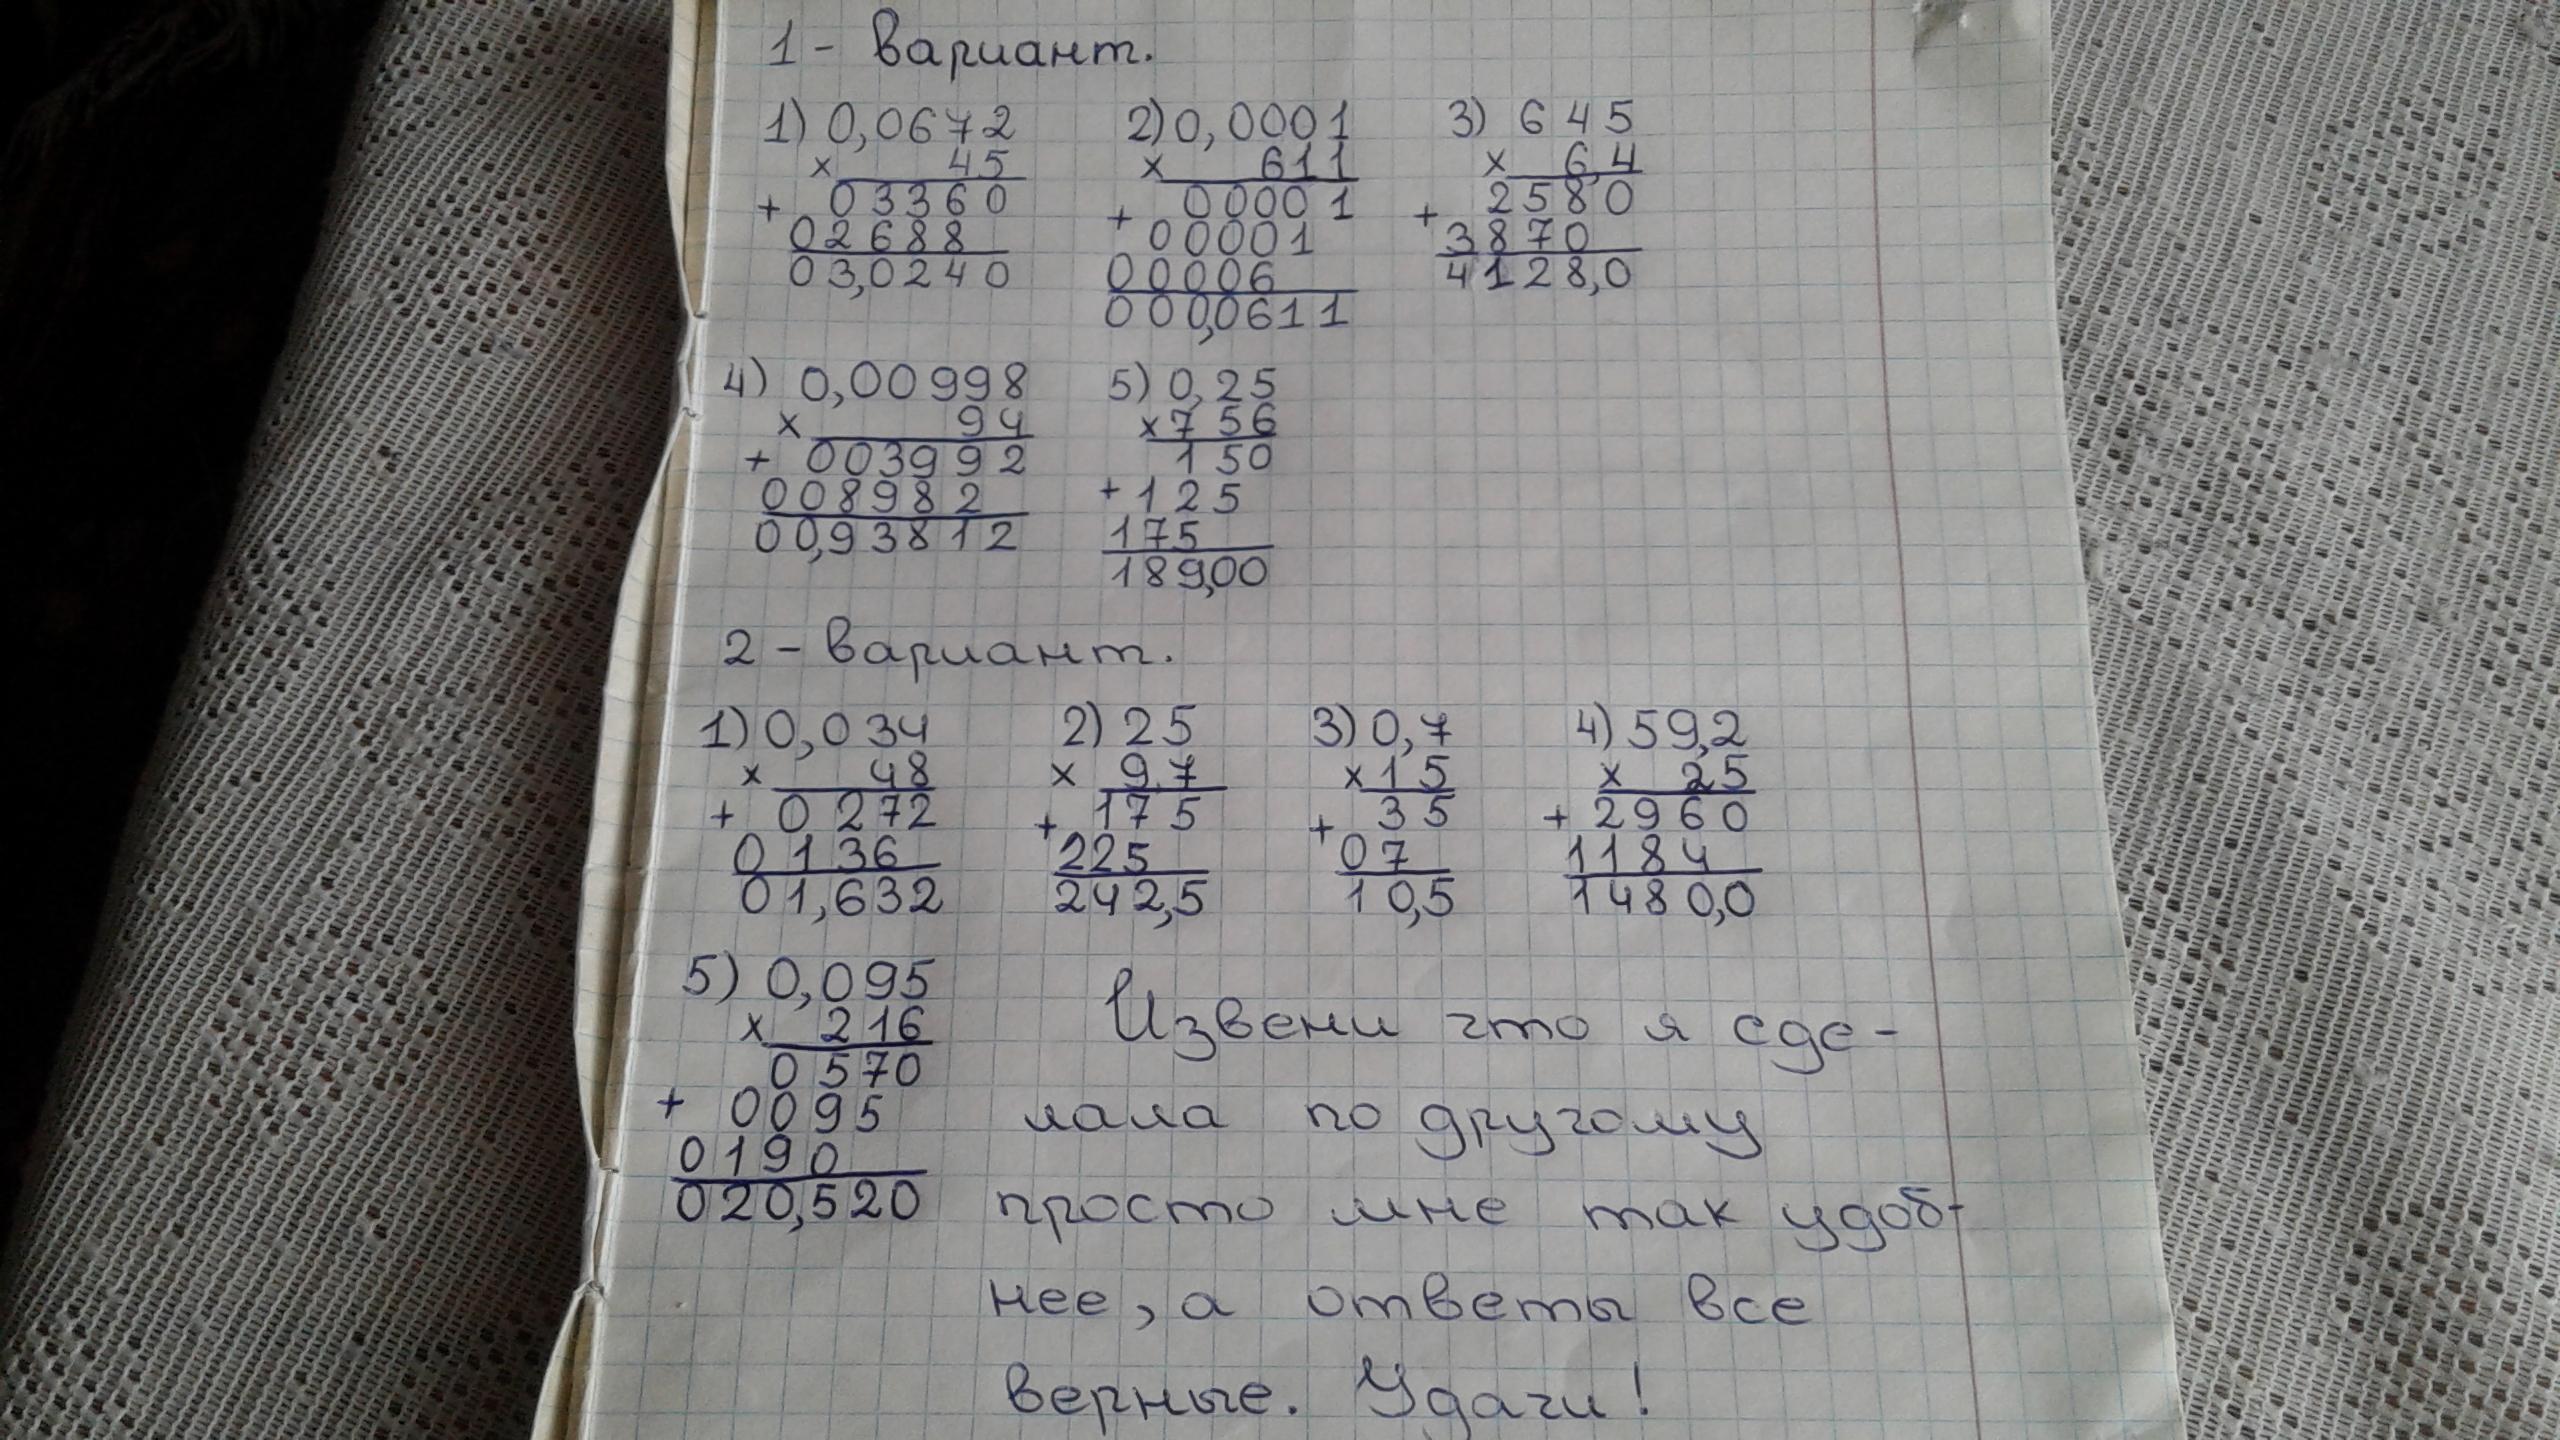 1 - вариант.
1) 0,0672 2) 0,0001 3) 645
х 45 х 611 х 6,4
+ 03360 + 00001 + 2580
02688 00001 3870
03,0240 00006 4128,0
000,0611
4) 0,00998 5) 0,25
х 94 х 756
+ 003992 150
008982 + 125
00,93812 175
189,00
2 - вариант.
1) 0,034 2) 25 3) 0,7 4) 59,2
х 48 х 9,7 х 15 х 25
+ 0272 + 175 + 35 + 2960
0136 225 07 1184
01,632 242,5 10,5 1480,0
5) 0,095
х 216
0570
+ 0095
0190
020,520
Извени что я сде-
лала по другому
просто мне так удоб-
нее, а ответы все
верные. Удачи!